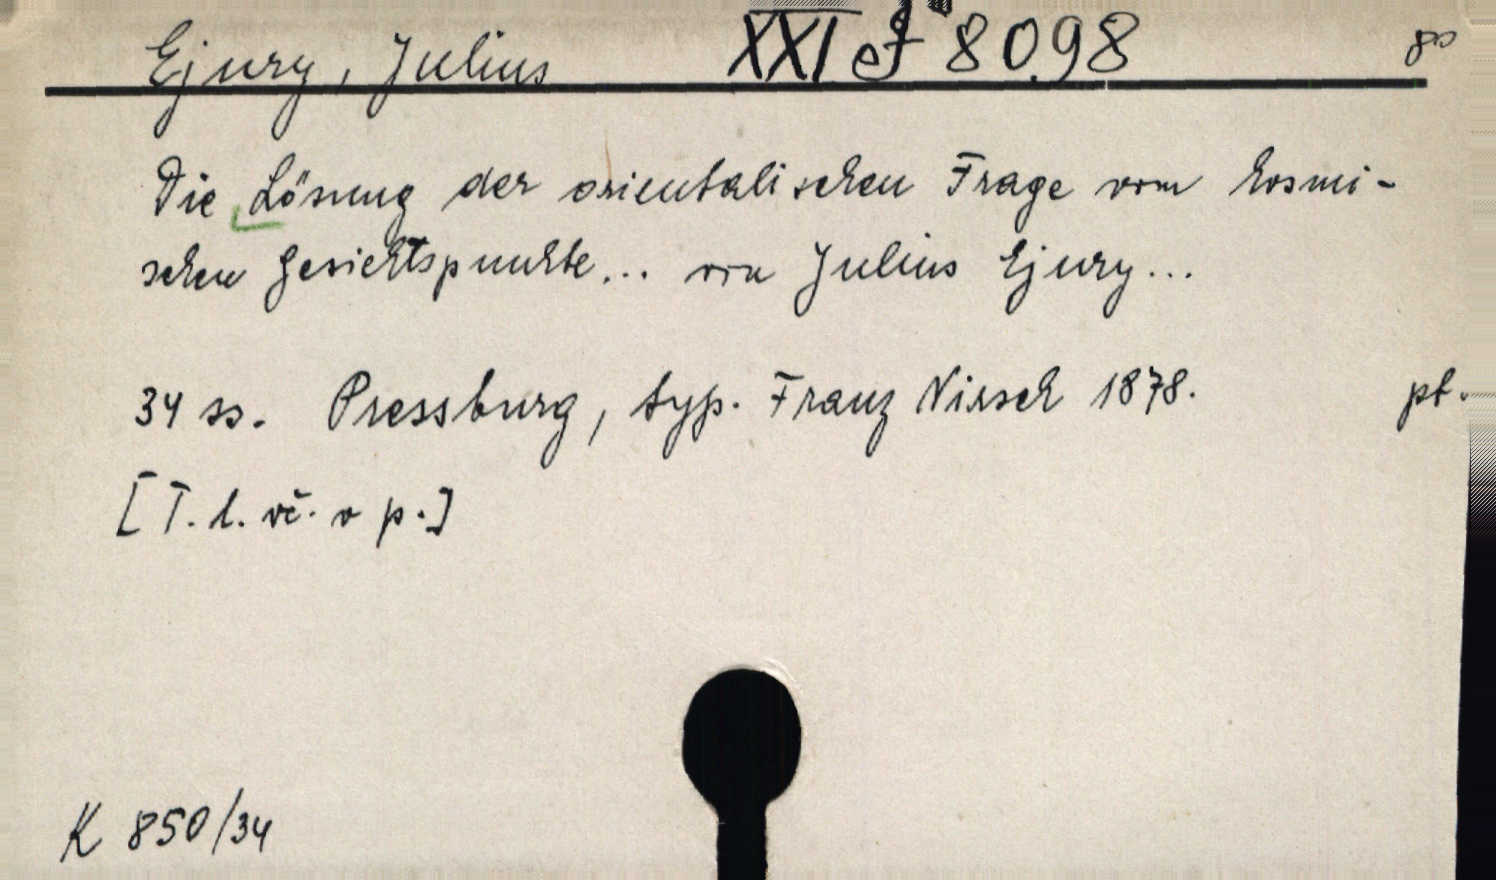 Ejury, Julius XXI J 8098 8°
Die Lösung der orientalischen Frage vom kosmi-
schen Gesichtspunkte... von Julius Ejury...
34 ss. Pressburg, typ. Franz Nirsch 1878. pt.
[T. l. vč. v p.]
K 850/34